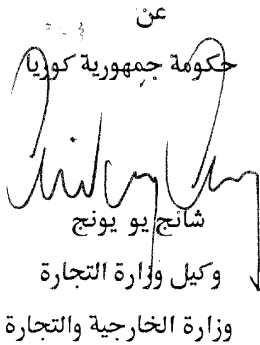 عن
حكومة جمهورية كوريا
شانج يو يونج
وكيل وزارة التجارة
وزارة الخارجية والتجارة